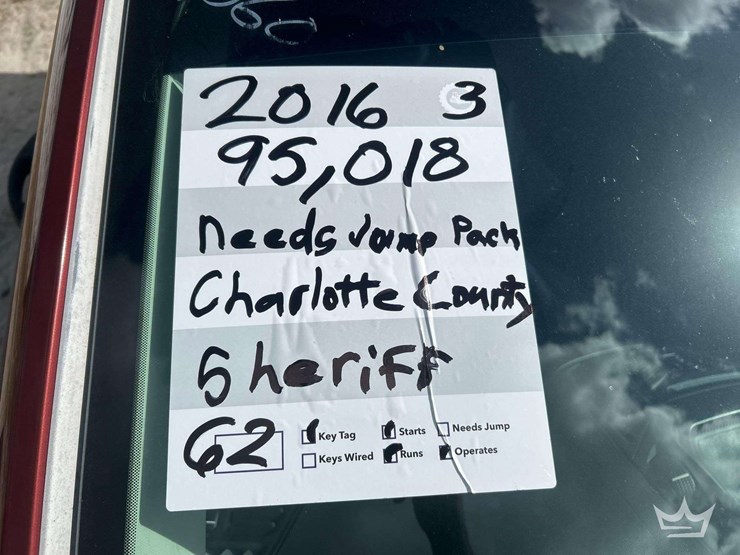 2016 3
95,018
Needs Jump Pack
Charlotte County
Sheriff
62
Key Tag Starts Needs Jump
Keys Wired Runs Operates